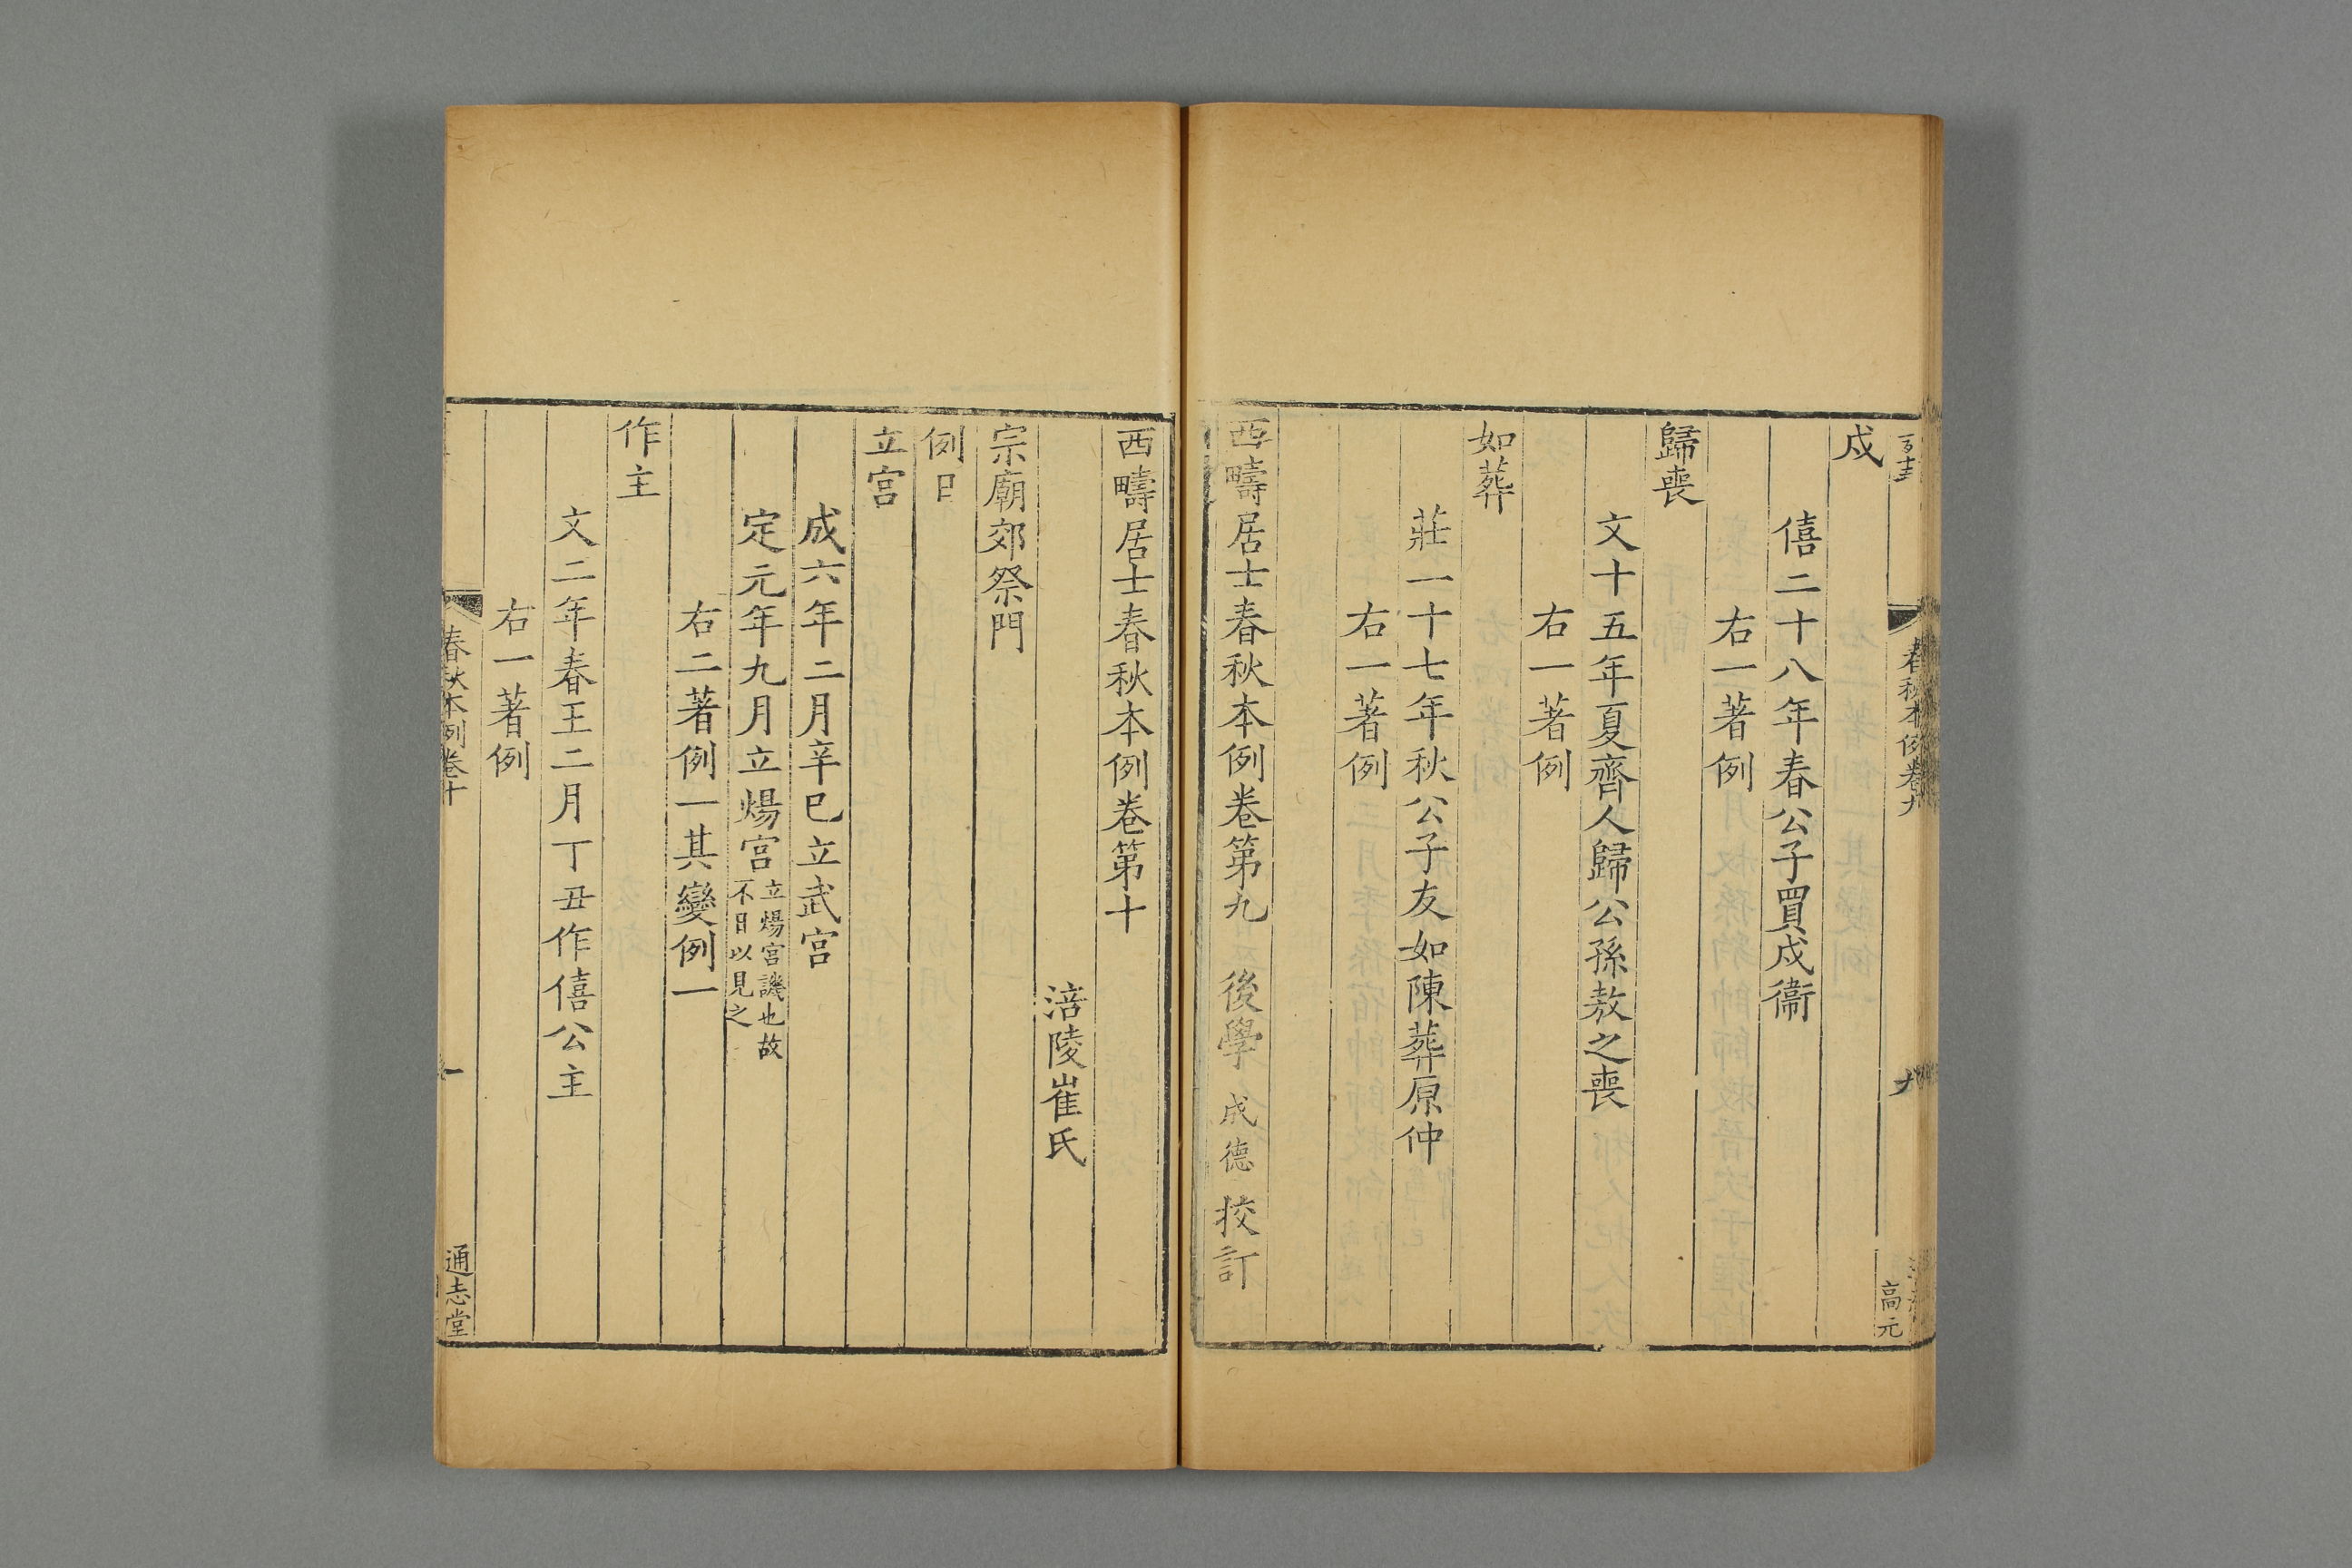 戍
僖二十八年春公子買戍衞
右一著例
歸喪
文十五年夏齊人歸公孫敖之喪
右一著例
如葬
莊一十七年秋公子友如陳葬原仲
右一著例
西疇居士春秋本例卷第九 後學 成德 挍訂
春秋本例卷九
九
高元
西疇居士春秋本例卷第十
涪陵崔氏
宗廟郊祭門
例日
立宫
成六年二月辛巳立武宫
定元年九月立煬宫 立煬宫譏也故
不日以見之
右二著例一其變例一
作主
文二年春王二月丁丑作僖公主
右一著例
春秋本例卷十
一
通志堂